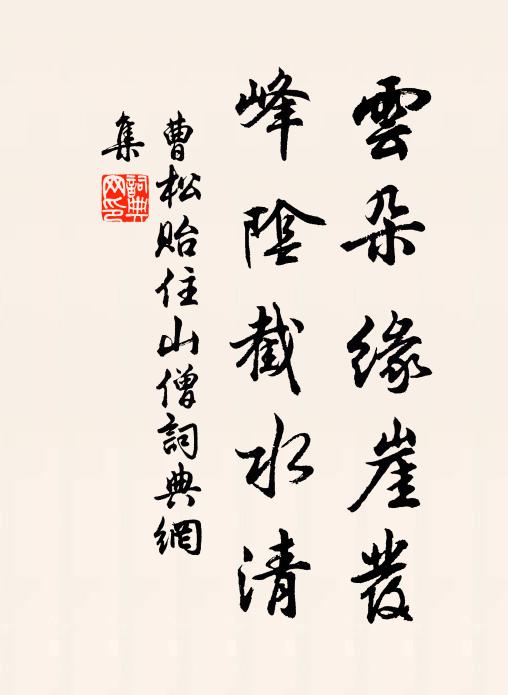 雲朵緣崖發
峰陰截水清
曹松貽住山僧詞典網
集
詞典网印